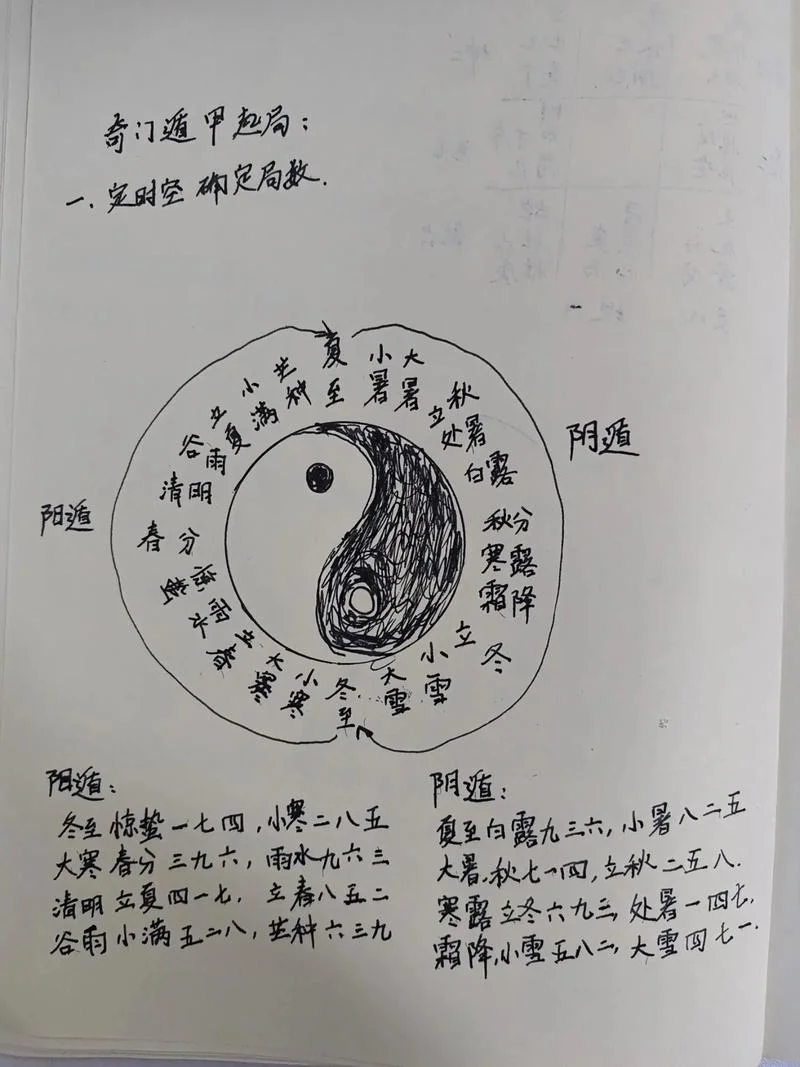 奇门遁甲起局：
一、定时空 确定局数.
夏至
小暑
大暑
立秋
处暑
白露
秋分
寒露
霜降
立冬
小雪
大雪
冬至
小寒
大寒
立春
雨水
惊蛰
春分
清明
谷雨
立夏
小满
芒种
阳遁
阴遁
阳遁：
冬至惊蛰一七四，小寒二八五
大寒春分三九六，雨水九六三
清明立夏四一七，立春八五二
谷雨小满五二八，芒种六三九
阴遁：
夏至白露九三六，小暑八二五
大暑.秋七一四，立秋二五八.
寒露立冬六九三，处暑一四七.
霜降.小雪五八二，大雪四七一.